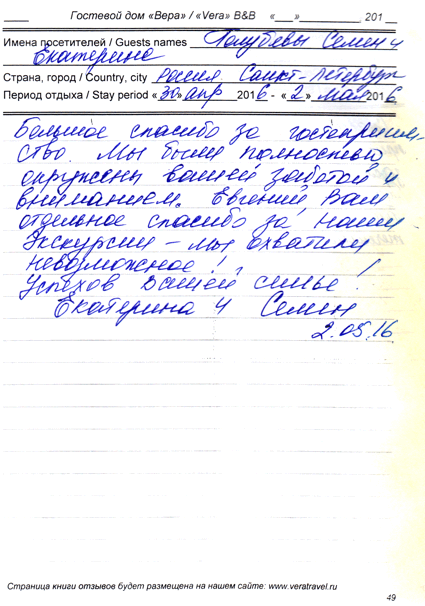 Гостевой дом «Вера» / «Vera» B&B «___»__________ 201__
Имена посетителей / Guests names Голубевы Семен и
Екатерина
Страна, город / Country, city Россия Санкт-Петербург
Период отдыха / Stay period «30» апр 2016 - «2» мая 2016
Большое спасибо за гостеприим-
ство. Мы были полностью
окружены вашей заботой и
вниманием. Евгений, Вам
отдельное спасибо за наши
Экскурсии – мы охватили
невозможное!
Успехов Вашей семье!
Екатерина и Семен
2.05.16
Страница книги отзывов будет размещена на нашем сайте: www.veratravel.ru
49